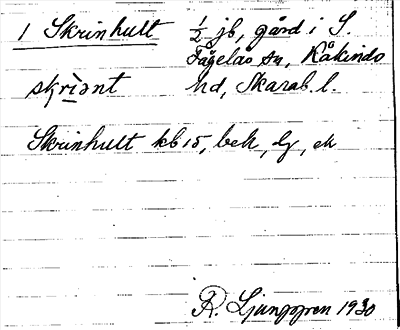 1 Skrinhult ½ jb, gård i S.
Fågelås sn, Kåkinds
skri̲ənt hd, Skarab. l.
Skrinhult kb 15, bek, lg, ek
R. Ljunggren 1930